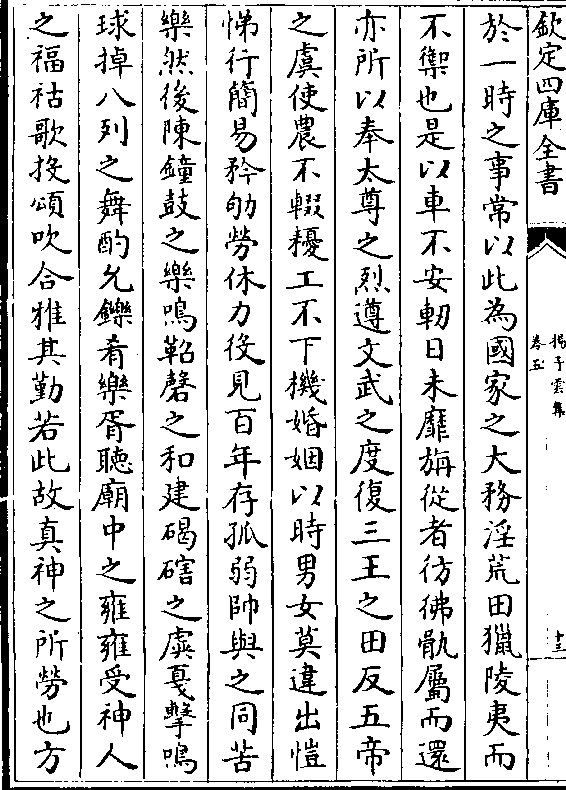 欽定四庫全書
揚子雲集
卷五
十三
於一時之事常以此為國家之大務淫荒田獵陵夷而
不禦也是以車不安軔日未靡旃從者彷彿骩屬而還
亦所以奉太尊之烈遵文武之度復三王之田反五帝
之虞使農不輟耰工不下機婚姻以時男女莫違出愷
悌行簡易矜劬勞休力役見百年存孤弱帥與之同苦
樂然後陳鐘鼓之樂鳴鞀磬之和建碣磍之虡戛擊鳴
球掉八列之舞酌允鑠肴樂胥聽廟中之雍雍受神人
之福祜歌投頌吹合雅其勤若此故真神之所勞也方